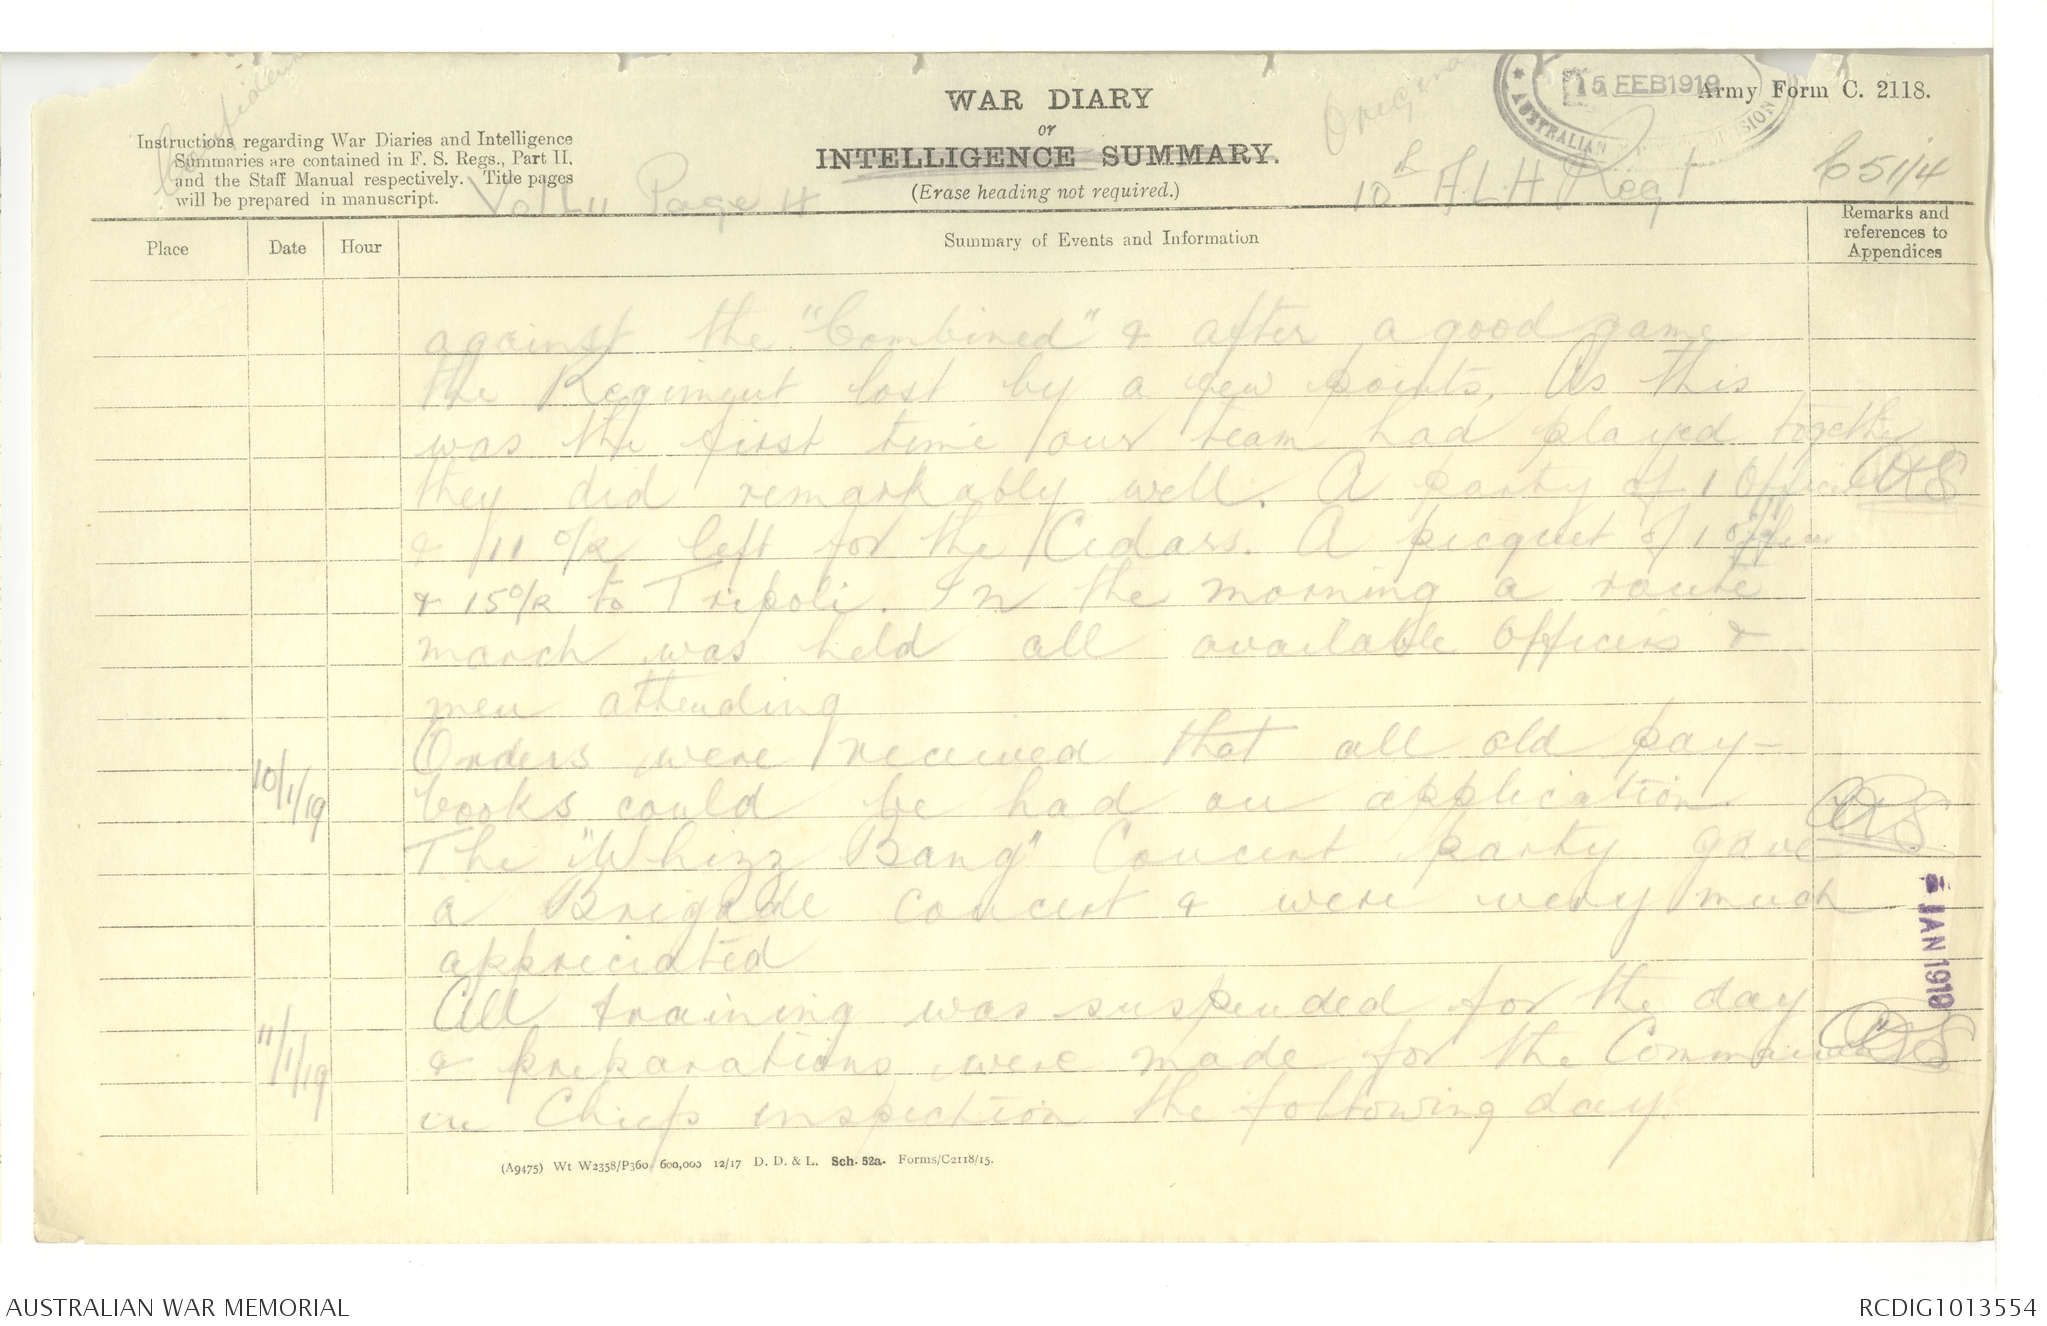 Confidential
Original
15 FEB 1919
AUSTRALIAN DIVISION
Army Form C. 2118.
WAR DIARY
or
INTELLIGENCE SUMMARY.
(Erase heading not required.)
Instructions regarding War Diaries and Intelligence
Summaries are contained in F. S. Regs., Part II.
and the Staff Manual respectively. Title pages
will be prepared in manuscript.
Page 4
10th A.L.H Regt
651/4
Place Date Hour Summary of Events and Information Remarks and
references to
Appendices
against the "Combined" & after a good game
the Regiment lost by a few points. As this
was the first time our team had played together
they did remarkably well. A party of 1 Officer
& 11 O/R left for the Cedars. A picquet of 1 officer
& 15 O/R to Tripoli. In the morning a route
march was held all available Officers &
men attending
10/1/19 Orders were received that all old pay-
books could be had on application.
The "Whizz Bang" Concert party gave
a Brigade concert & were very much
appreciated
JAN 1919
11/1/19 All training was suspended for the day
& preparations were made for the Commander
in Chiefs inspection the following day.
(A9475) Wt W2358/P360 600,000 12/17 D. D. & L. Sch. 52a. Forms/C2118/15.
AUSTRALIAN WAR MEMORIAL
RCDIG1013554